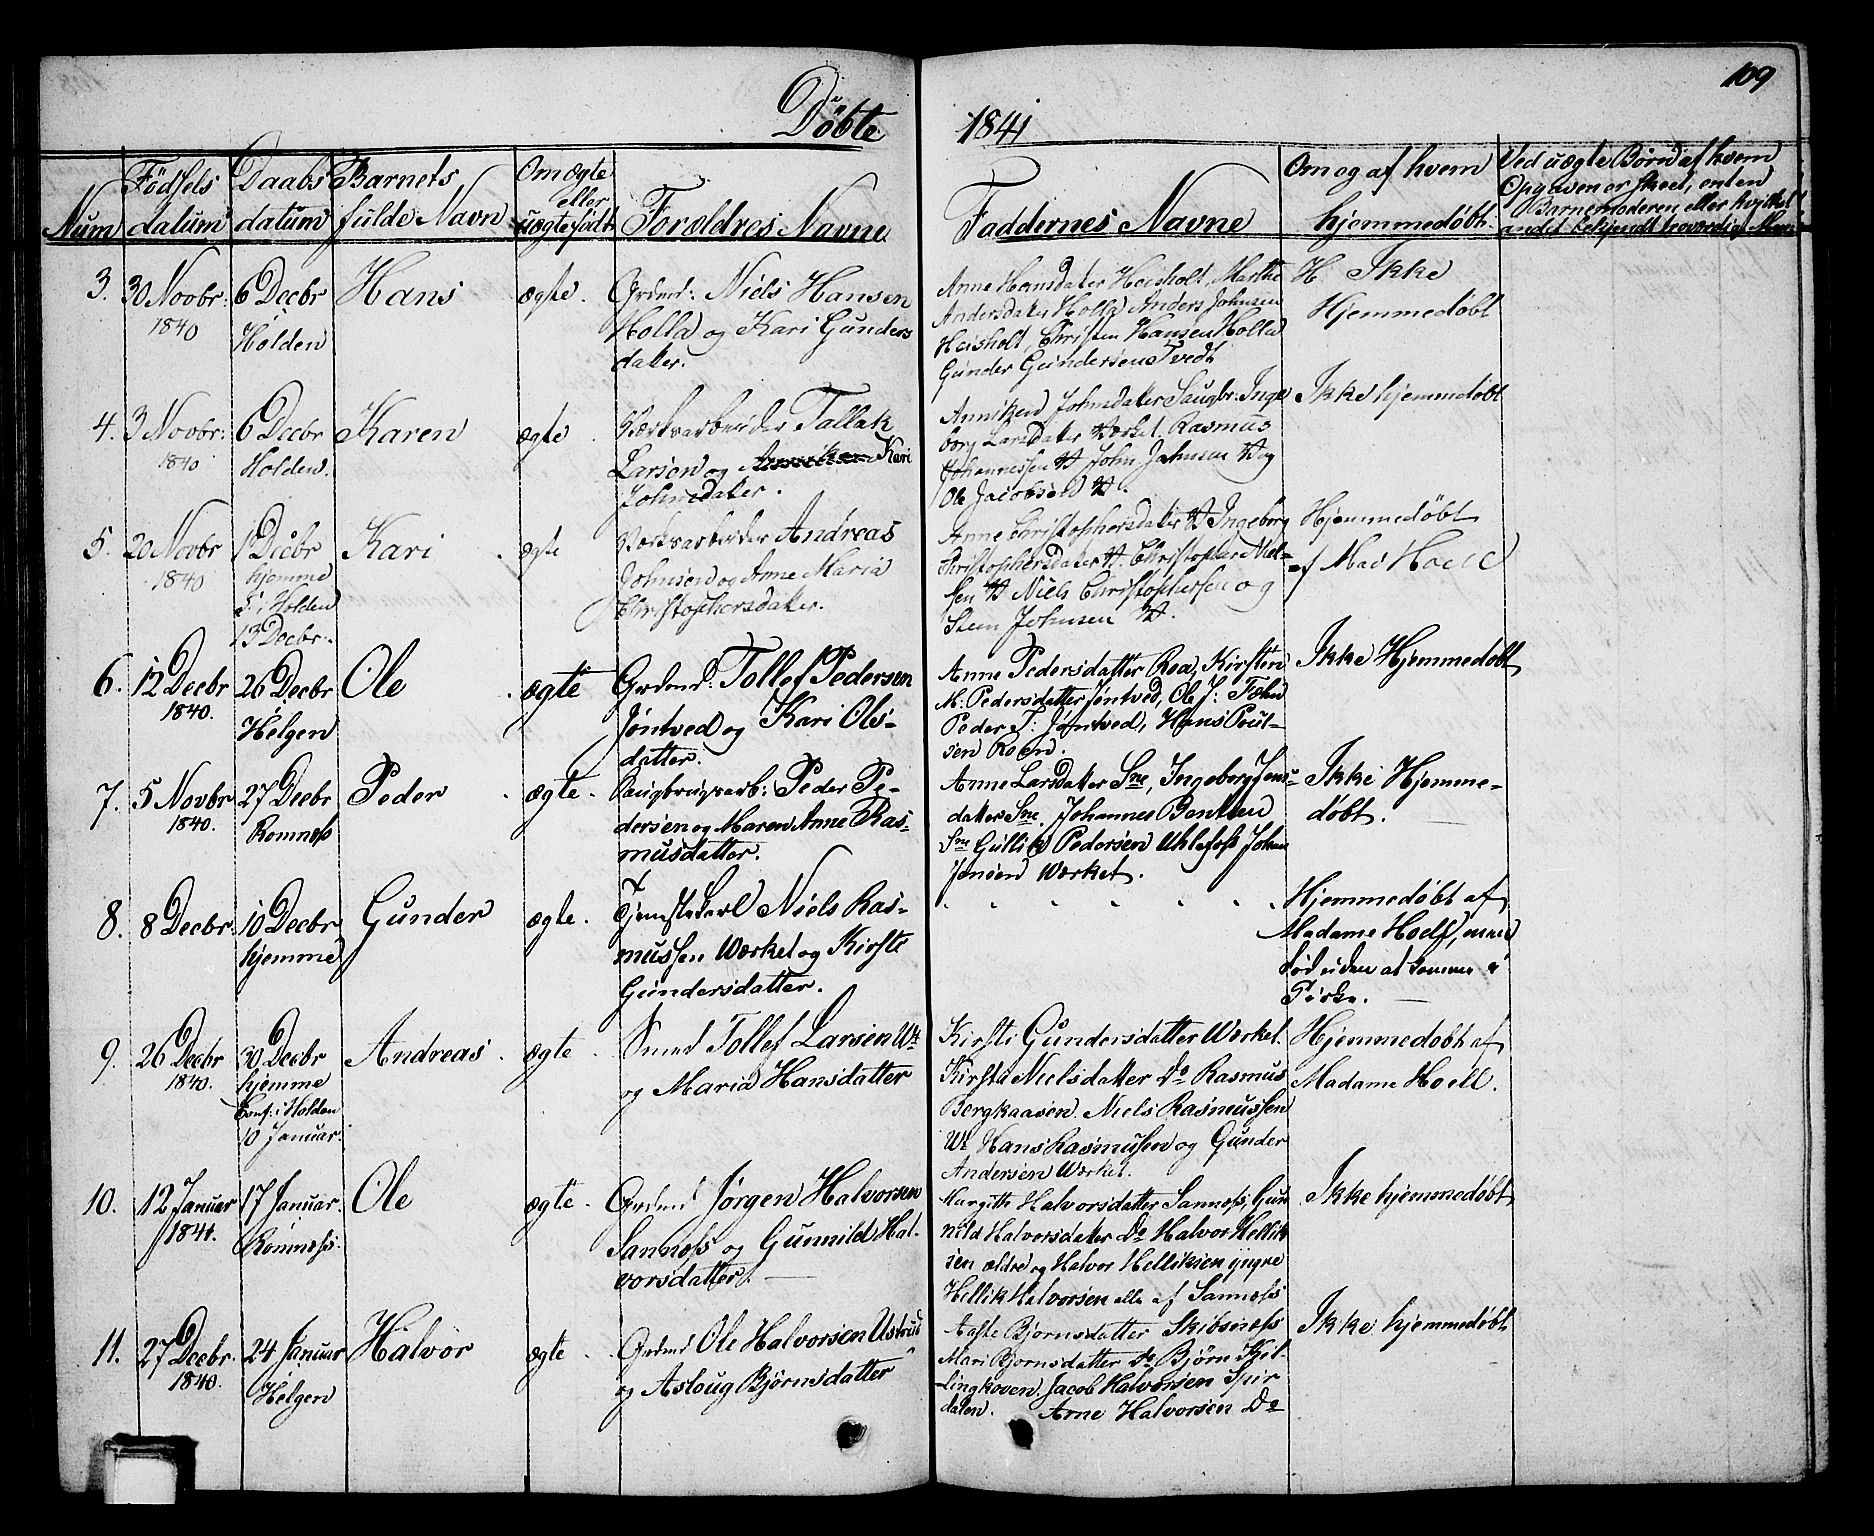 109
Döbte 1841
Num
Födsels datum
Daabs datum
Barnets fulde Navn
Om ægte eller uægte födt
Forældres Navne
Faddernes Navne
Om og af hvem hjemmedøbt
Ved uægte Børn af hvem
Opgaven er skeet, enten
Barnemoderen eller hvilket
andet bekjendt troværdigt
3. 30 Novbr: 1840
6 Decbr Holden
Hans
ægte.
Grdmd: Niels Hansen
Holla og Kari Gunders
datter.
Anne Hansdatter Heisholt, Marthe
Andersdatter Holla Anders Johnsen
Heisholt, Christen Hansen Holla
Gunder Gundersen Tvedt
Ikke
Hjemmedøbt
4. 3 Novbr: 1840
6 Decbr Holden.
Karen
ægte
Værksarbeider Tallak
Larsen og Kari
Johnsdatter.
Anniken Johnsdatter Saugbr: Inge
borg Larsdatter Værket. Rasmus
Johannessen W John Johnsen W og
Ole Jacobsen W.
Ikke hjemmedøbt
5. 20 Novbr 1840
1 Decbr
hjemme
i Holden
13 Decbr.
Kari
ægte
Værksarbeider Andreas
Johnsen og Anne Maria
Christophersdatter.
Anne Christophersdatter W Ingeborg
Christophersdatter W. Christopher Niel-
sen W Niels Christophersen og
Sten Johnsen W.
Hjemmedøbt
af Mad Hoell
6. 12 Decbr 1840.
26 Decbr Helgen
Ole
ægte
Grdmd: Tollef Pedersen
Jøntved og Kari Ols-
datter.
Anne Pedersdatter Roa, Kirsten
M. Pedersdatter Jøntved, Ole J:
Peder T: Jøntved, Hans Poul-
sen Roen.
Ikke Hjemmedøbt
7. 5 Novbr 1840.
27 Decbr Romnæs
Peder
ægte.
Saugbrugsarb: Peder Pe-
dersen og Maren Anne Ras-
musdatter.
Anne Larsdatter Sne, Ingeborg Jens-
datter Sne, Johannes Bentsen
Sne Gullik Pedersen Uhlefos Johan
Jensen Værket.
Ikke Hjemme-
døbt.
8. 8 Decbr.
10 Decbr hjemme
Gunder
ægte.
Tjenestekarl Niels Ras-
mussen Værket og Kirste
Gundersdatter.
Hjemmedøbt af
Madame Hoell, men
død uden at komme i
Kirke.
9. 26 Decbr 1840.
30 Decbr
hjemme
Conf: i Holden
10 Januar.
Andreas.
ægte
Smed Tollef Larsen Wk
og Maria Hansdatter
Kirsti Gundersdatter Værket.
Kirsta Nielsdatter Do Rasmus
Bergkaasen. Niels Rasmussen
Wk Hans Rasmussen og Gunder
Andersen Værket.
Hjemmedøbt af
Madame Hoell.
10. 12 Januar 1841.
17 Januar. Romnæs.
Ole
ægte.
Grdmd Jørgen Halvorsen
Sannæs og Gunnild Hal-
vorsdatter.
Margith Halvorsdatter Sannæs, Gun
nild Halvorsdatter Do Halvor Hellik
sen ældre og Halvor Helliksen yngre
Hellik Halvorsen alle af Sannæs
Ikke hjemmedøbt
11. 27 Decbr. 1840.
24 Januar Helgen
Halvor
ægte
Grdmd Ole Halvorsen Ustrud
og Asloug Bjørnsdatter
Aaste Bjørnsdatter Skiösnæs
Mari Bjørnsdatter Do Bjørn Kil-
lingkoven. Jacob Halvorsen
dalen. Arne Halvorsen Do
Ikke hjemmedøbt